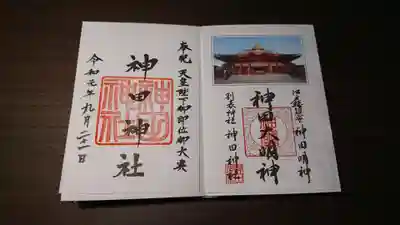 奉祝 天皇陛下御即位御大典
神田神社
令和元年九月二十一日
江戸総鎮守 神田明神
神田大明神
別表神社 神田神社